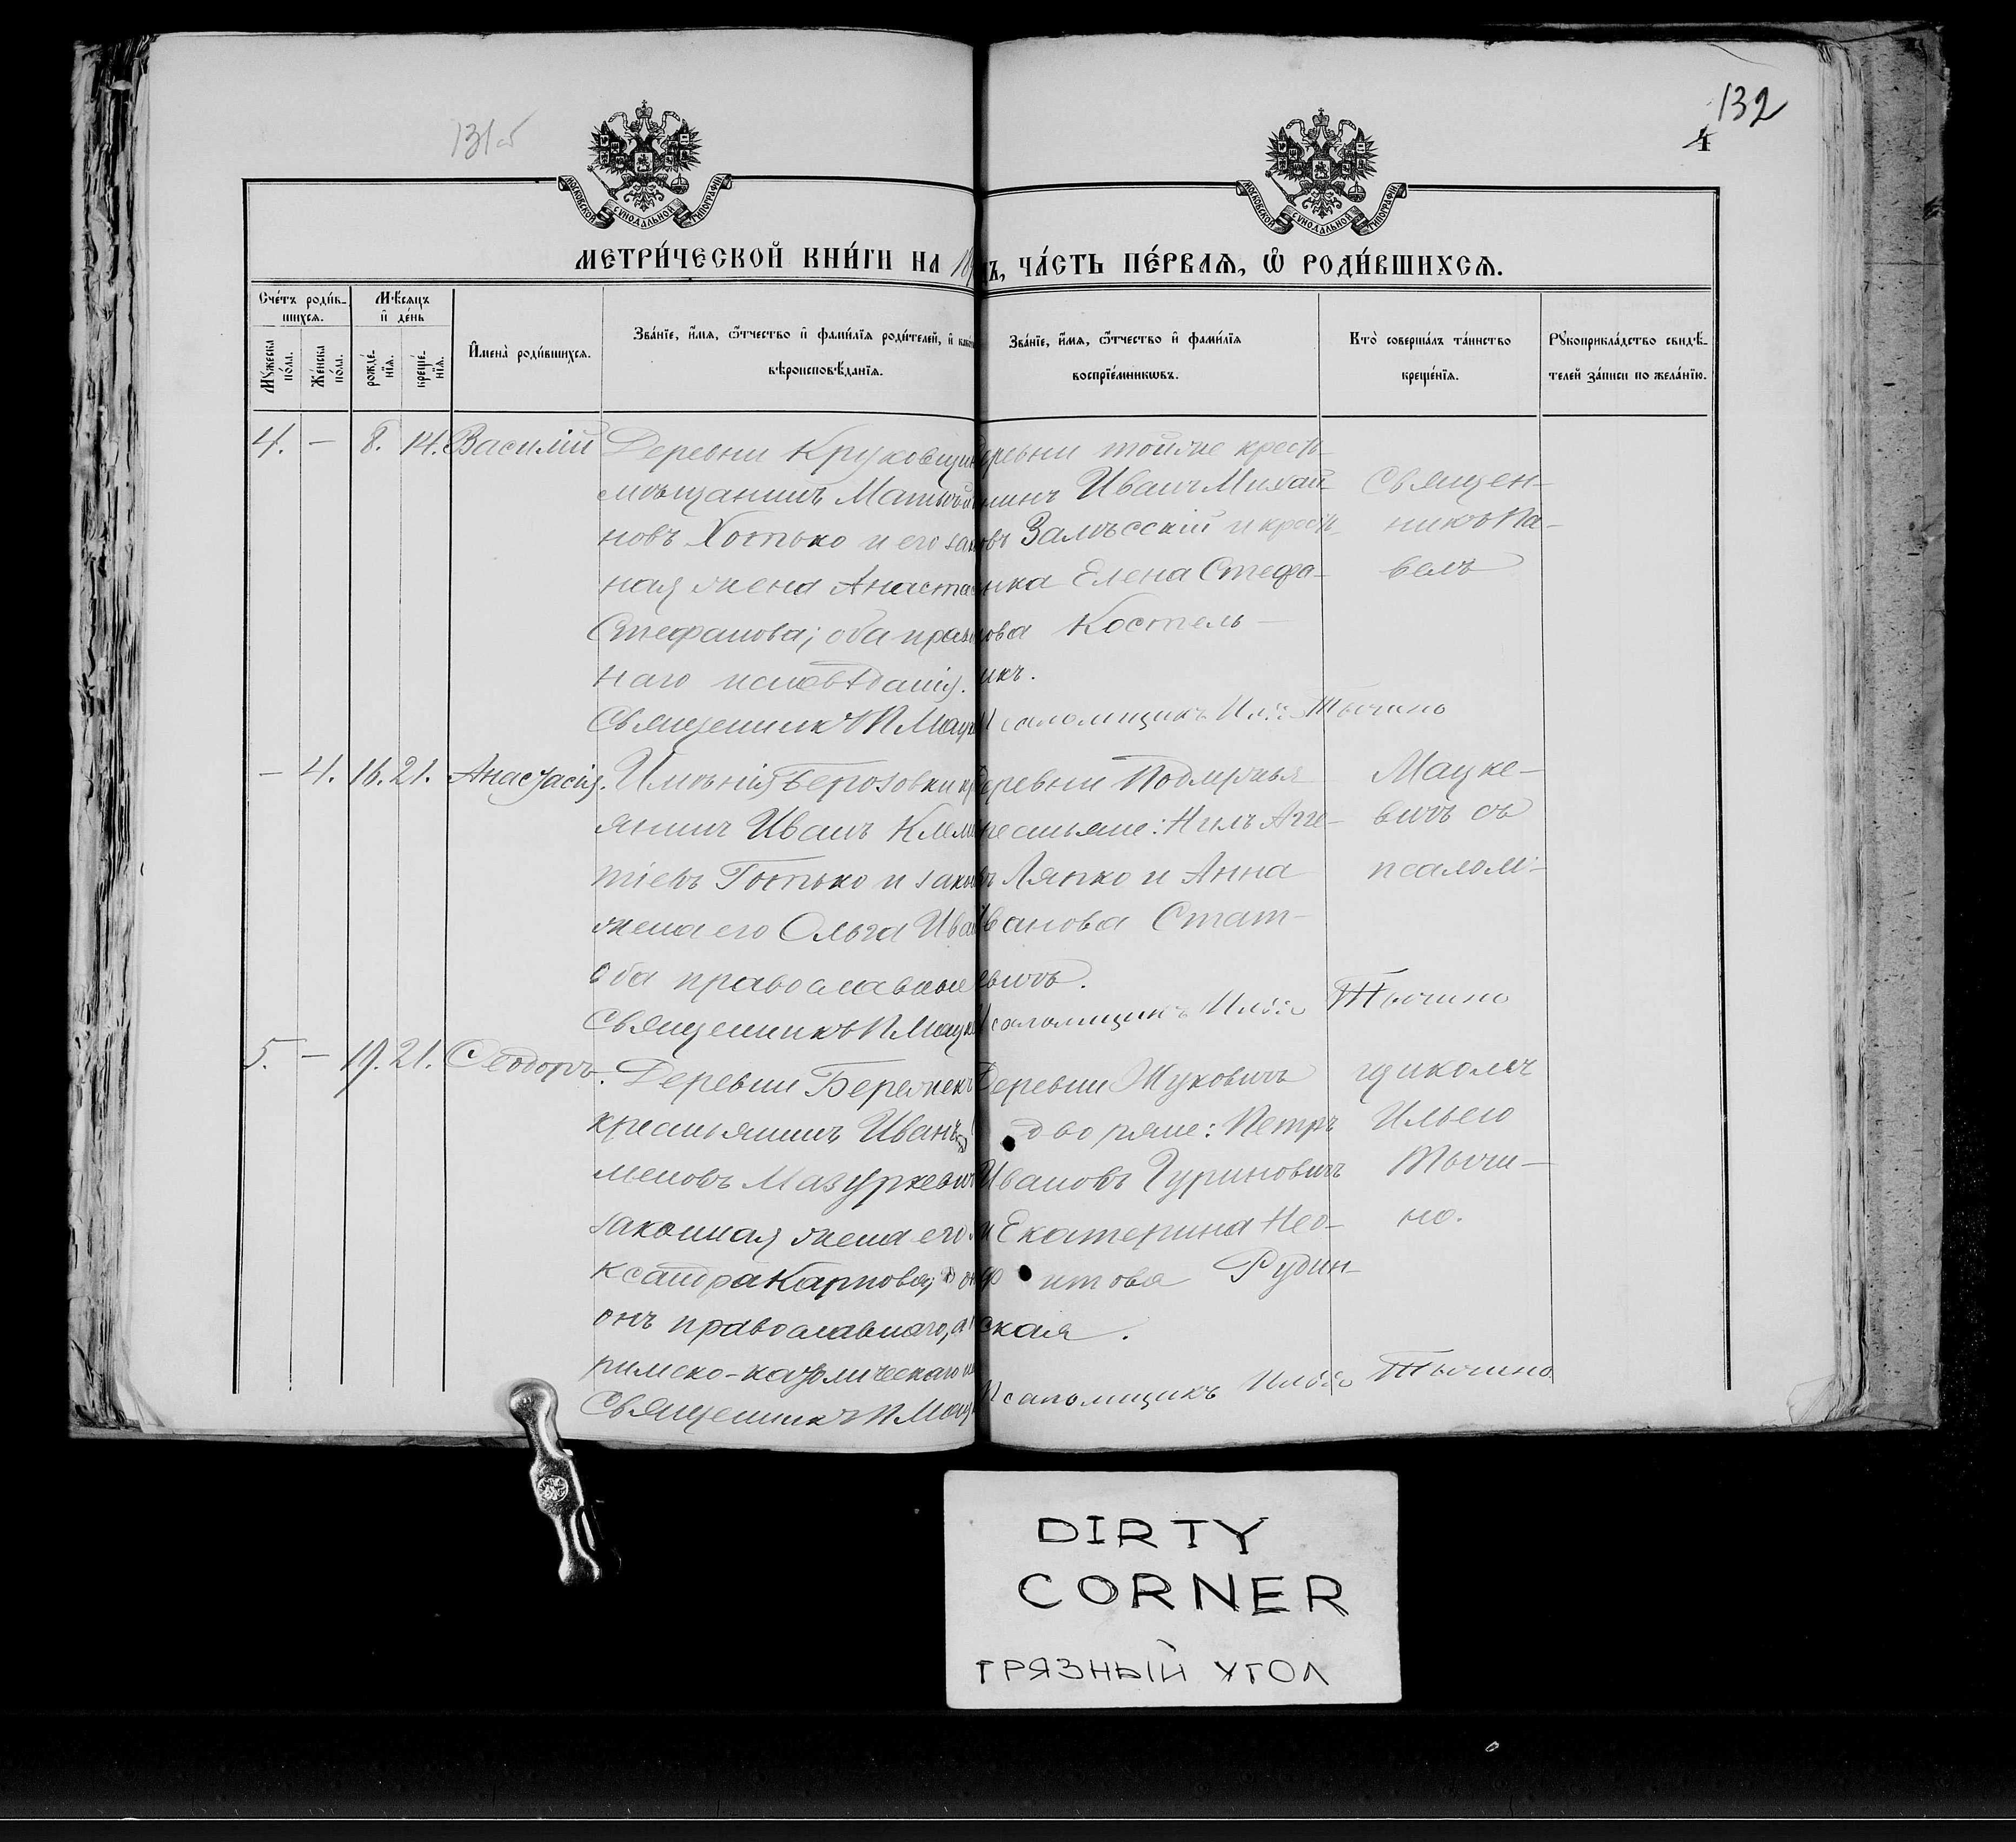 131об
132
4
МОСКОВСКОЙ СѴНОДАЛЬНОЙ ТИПОГРАФІИ
МОСКОВСКОЙ СѴНОДАЛЬНОЙ ТИПОГРАФІИ
МЕТРИ́ЧЕСКОЙ КНИ́ГИ НА 18
ЧА́СТЬ ПЕ́РВАѦ, Ѿ РОДИ́ВШИХСѦ.
Сче́тъ роди́в-
шихсѧ.
Мꙋ́жеска по́ла.
Же́нска по́ла.
Мѣ́сѧцъ и҆ де́нь
рожде́-нїѧ.
креще́-нїѧ.
И҆мена̀ роди́вшихсѧ.
Зва́нїе, и҆́мѧ, ѻ҆́тчество и҆ фами́лїѧ роди́телей, и҆
вѣроисповѣ́данїѧ.
Зва́нїе, и҆́мѧ, ѻ҆́тчество и҆ фами́лїѧ
воспрїе́мникѡвъ.
Кто̀ соверша́лъ та́инство
креще́нїѧ.
Рꙋкоприкла́дство свидѣ́-
телей за́писи по жела́нїю.
4. — 8. 14. Василій
Деревни Круковщин
мѣщанинъ Матвѣй
новъ Хотько и его зак
ная жена Анаста
Стефанова; оба прав
наго исповѣданія.
Священникъ П Мацк
еревни тойже крест-
нинъ Иванъ Михай-
овъ Залѣсскій и крест-
нка Елена Стефа-
нова Костель-
икъ.
Псаломщикъ Илія Тычино
Священ-
никъ Па-
велъ
— 4. 16. 21. Анастасія.
Имѣнія Берозовки кр
янинъ Иванъ Клем
тіевъ Готько и закон
жена его Ольга Ива
оба православные
Священникъ П Мацк
Деревни
рестьяне: Нилъ Агге-
въ Ляпко и Анна
Иванова Стат-
евичъ.
Псаломщикъ Илія Тычино
Мацке-
вичъ съ
псалом-
5. — 19. 21. Ѳеодоръ.
Деревни Бережек
крестьянинъ Иванъ
меновъ Мазуркевич
законная жена его
ксандра Карпова;
онъ православнаго, а
римско-католическаго
Священникъ П Мацк
Деревни Жуковичъ
дворяне: Петръ
Ивановъ Гуриновичъ
и Екатерина Нео-
фитова Рудин-
ская.
Псаломщикъ Илія Тычино
щикомъ
Ильею
Тычи-
но.
DIRTY
CORNER
ГРЯЗНЫЙ УГОЛ